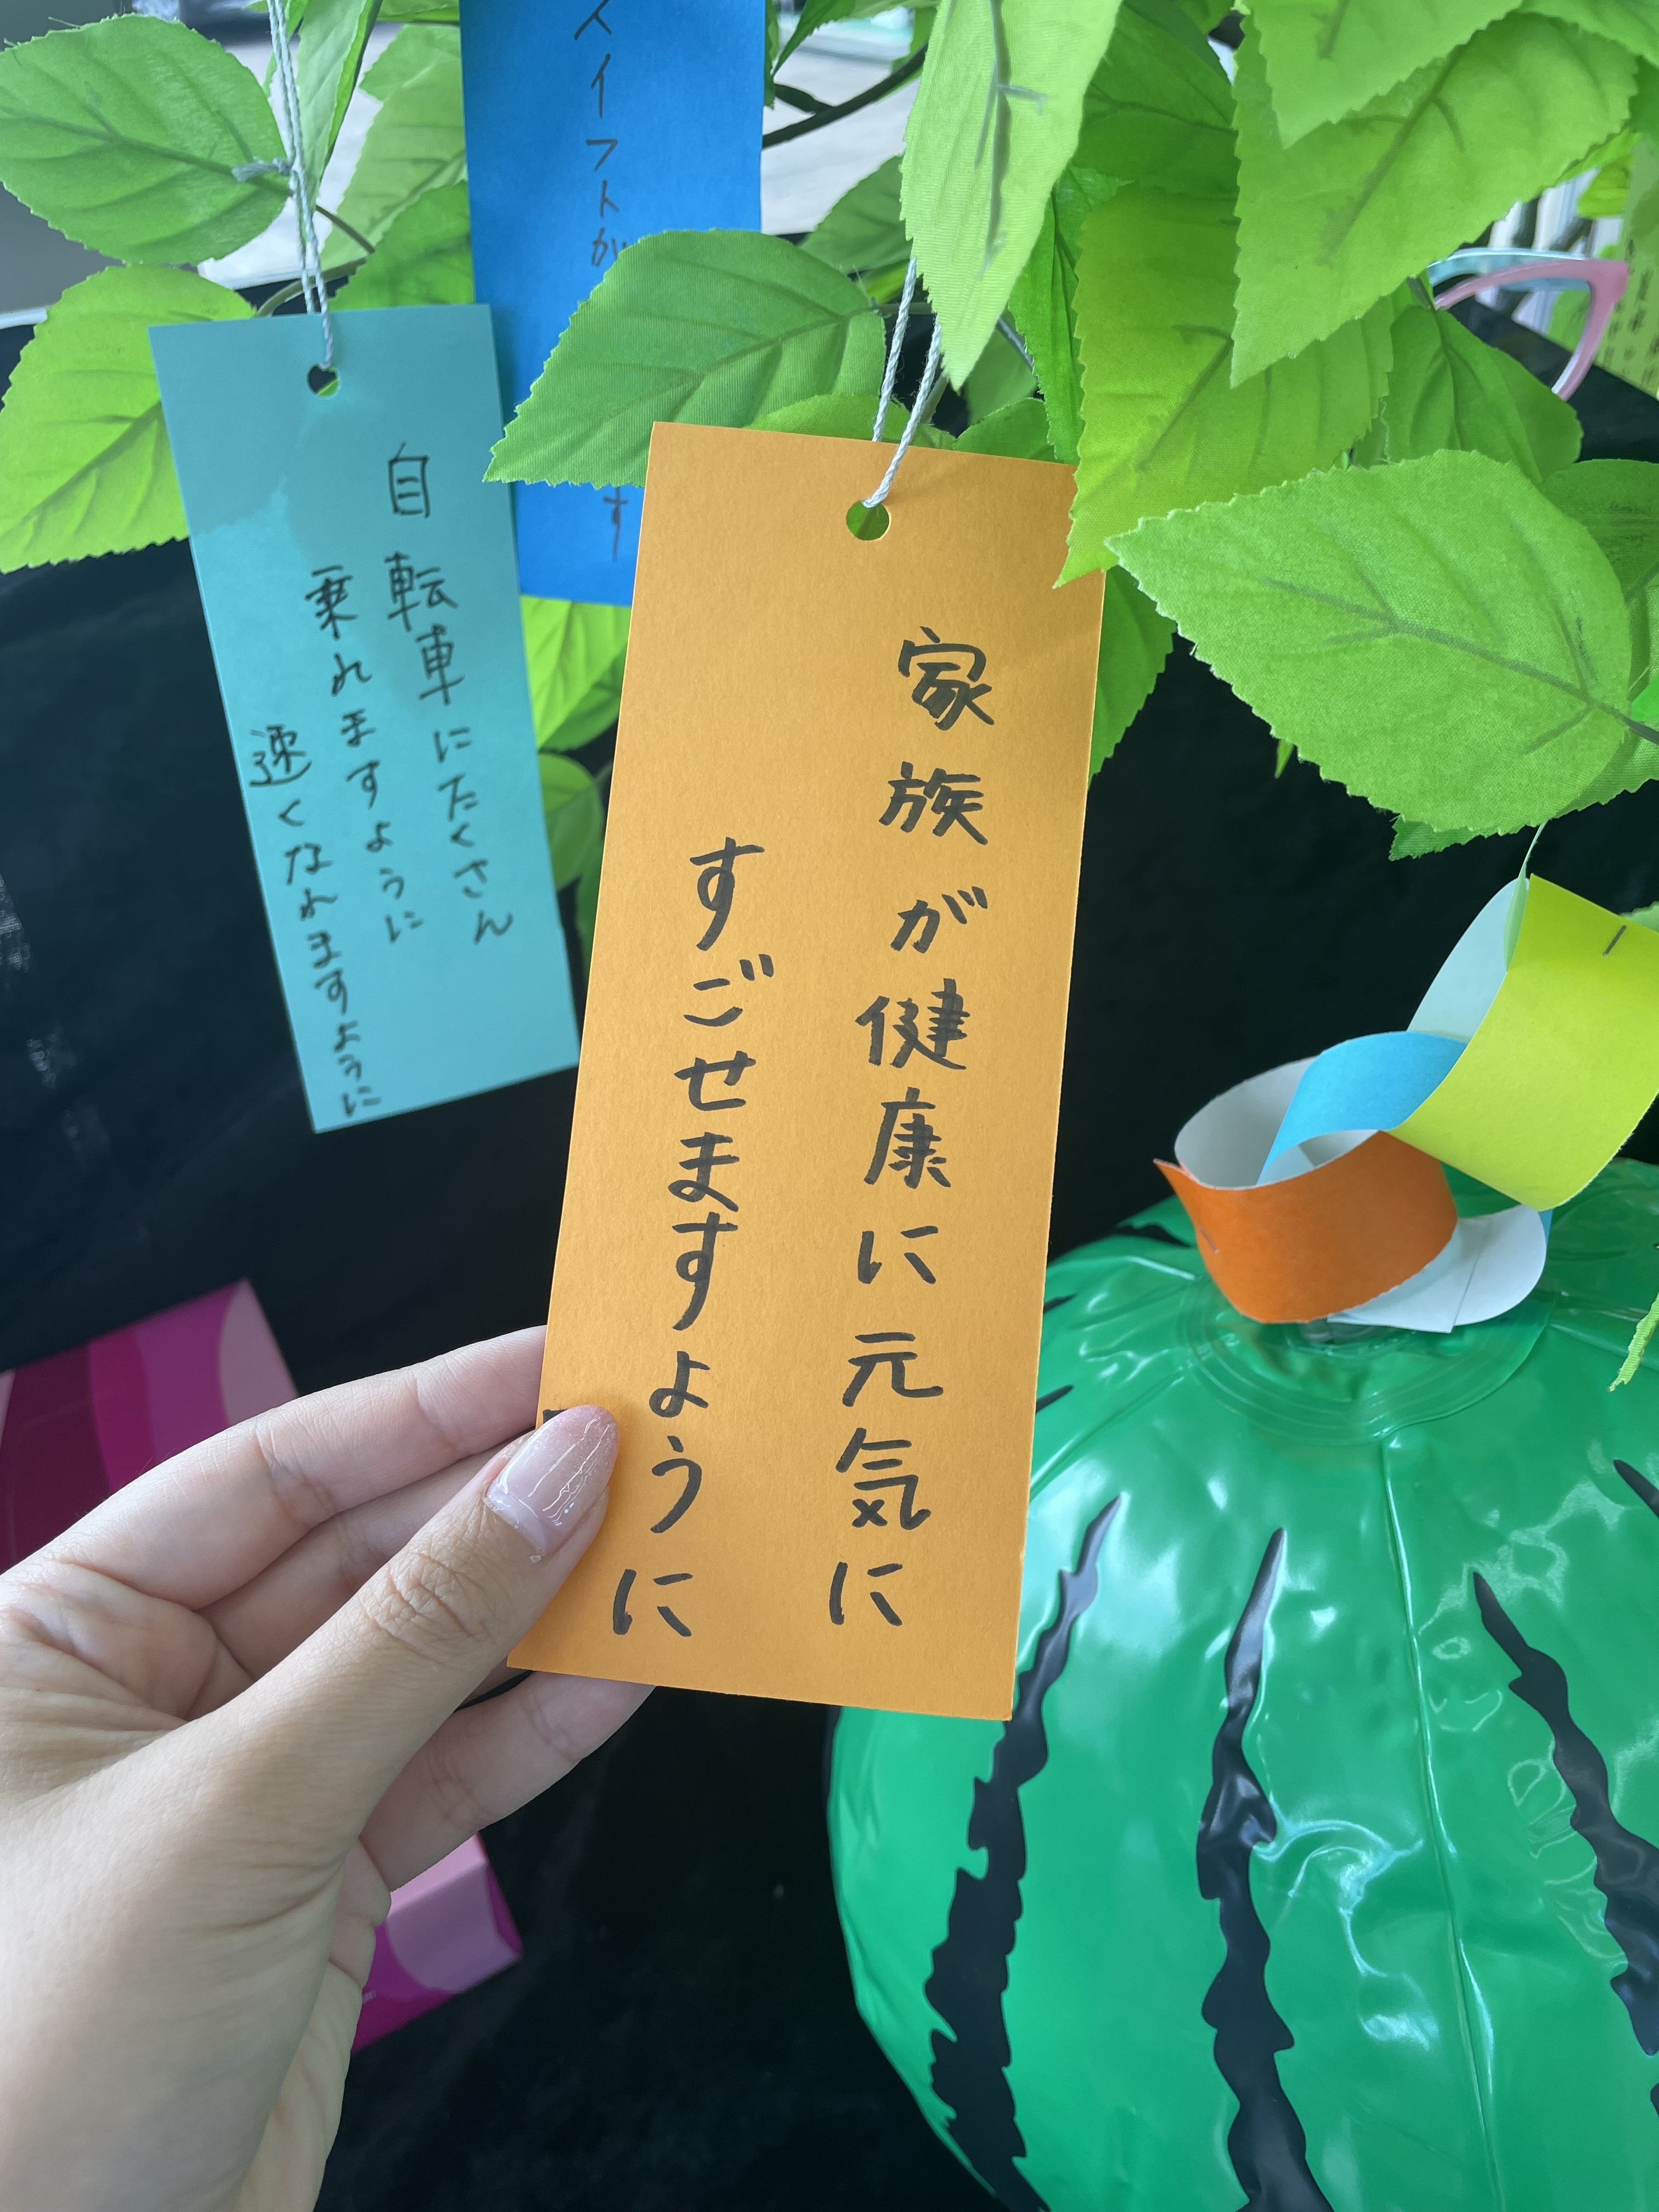 家族が健康に元気に
すごせますように
自転車にたくさん
乗れますように
速くなれますように
スイフトが
す